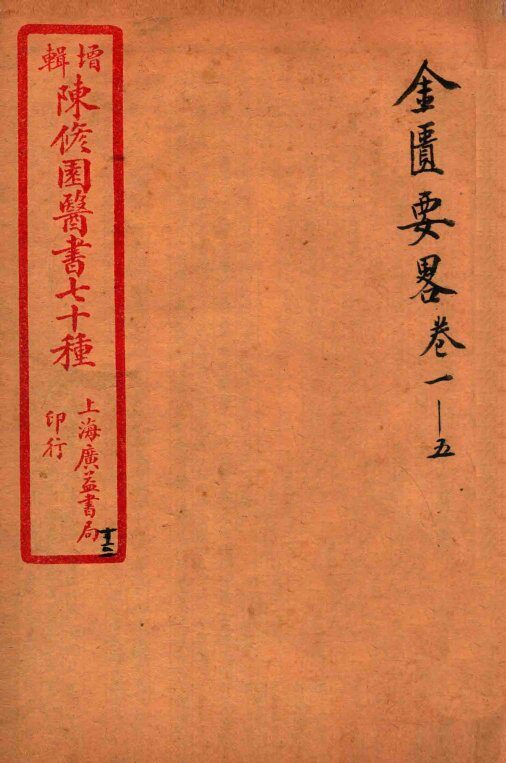 金匱要畧卷一—五
增輯
陳修園醫書七十種
上海廣益書局
印行
十二